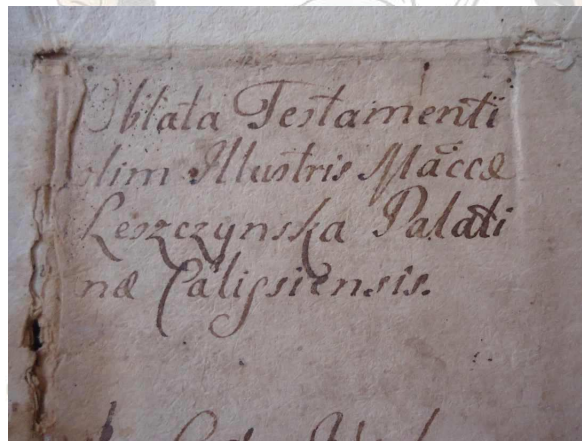 Oblata Testamenti
olim Illustris Mâccæ
Leszczynska Palati
næ Calissiensis.